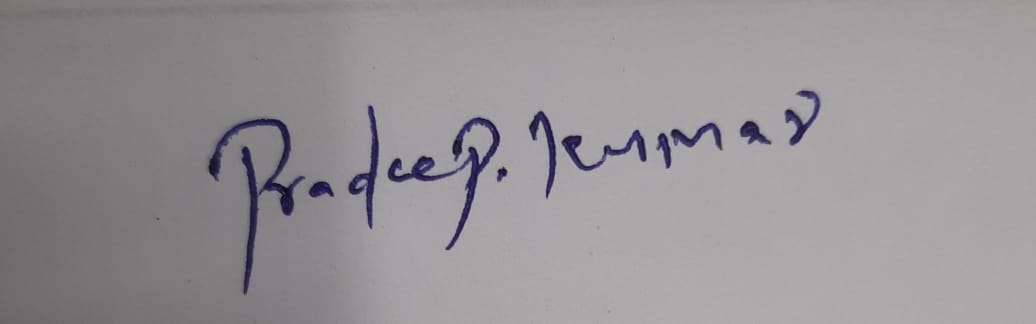 Pradeep. Kumar